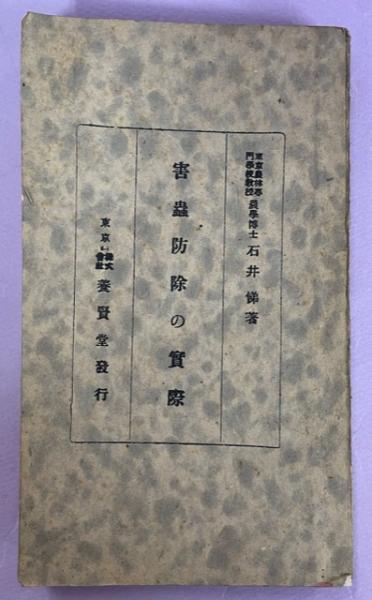 東京農林專門學校教授 農學博士 石井悌著
害蟲防除の實際
東京 株式會社 養賢堂發行